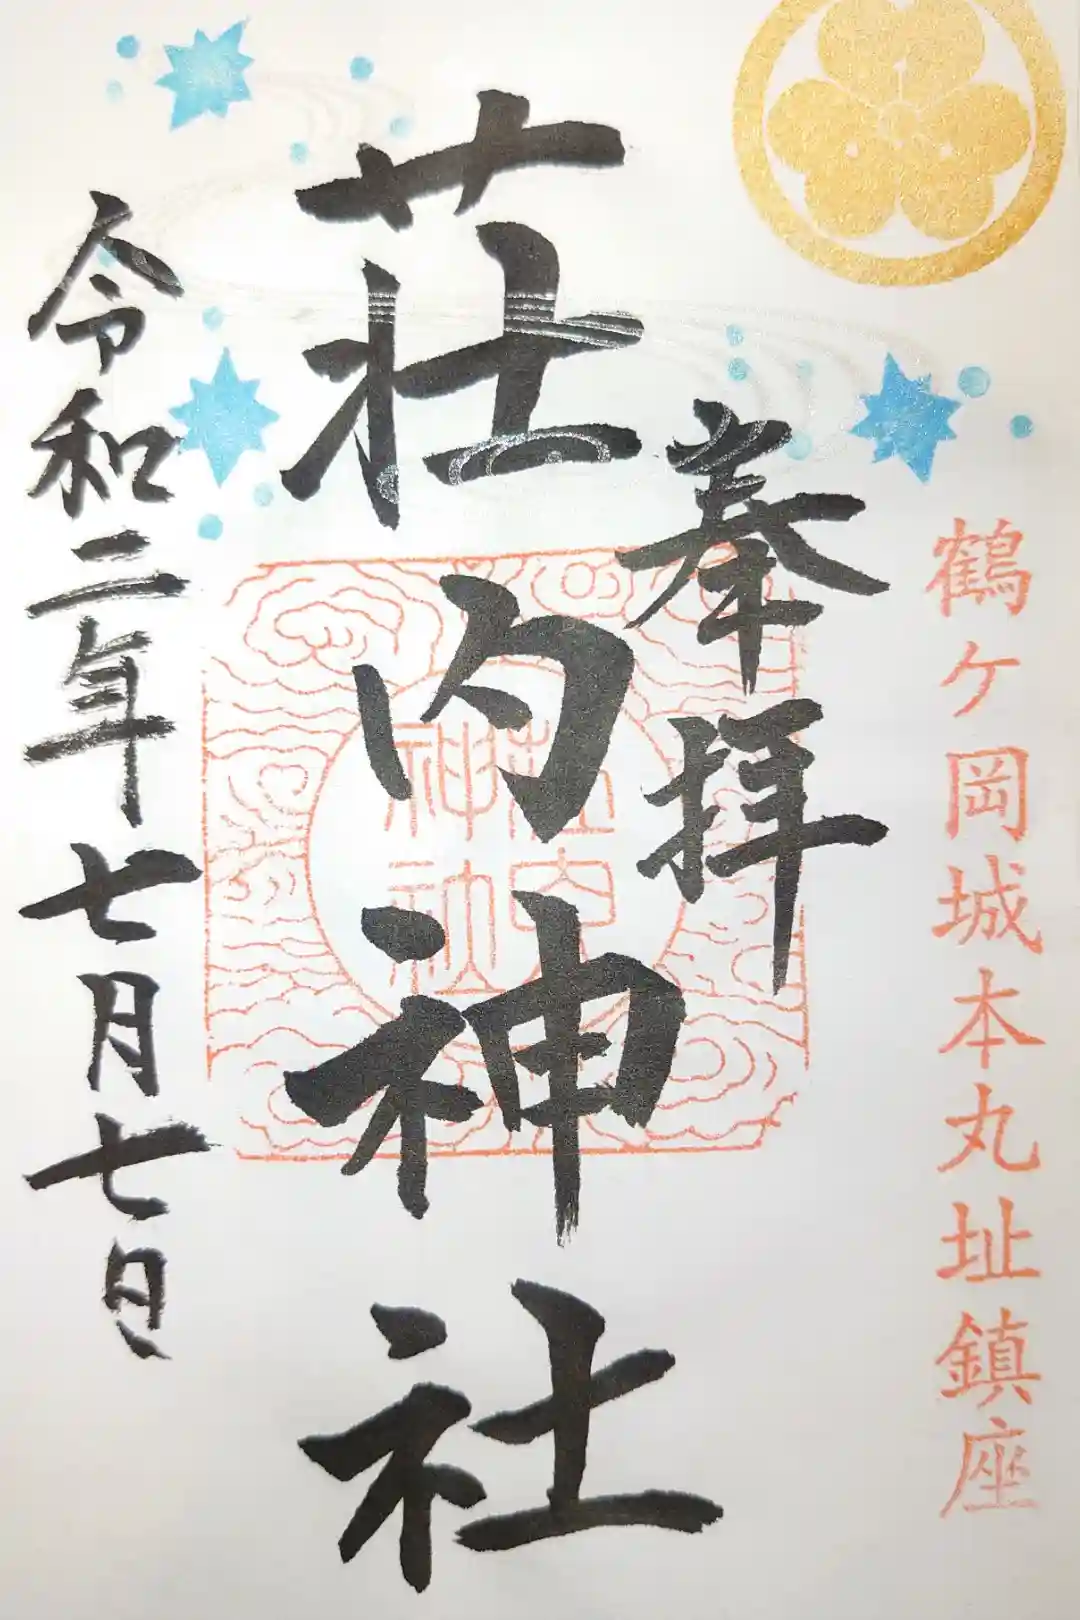 鶴ヶ岡城本丸址鎮座
奉拝
荘内神社
荘内
神社
令和二年七月七日